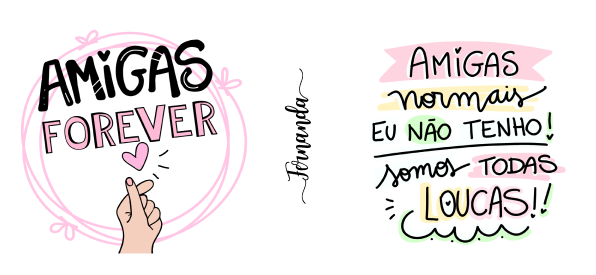 AMIGAS
FOREVER
Fernanda
AMIGAS
normais
EU NÃO TENHO!
somos TODAS
LOUCAS!!